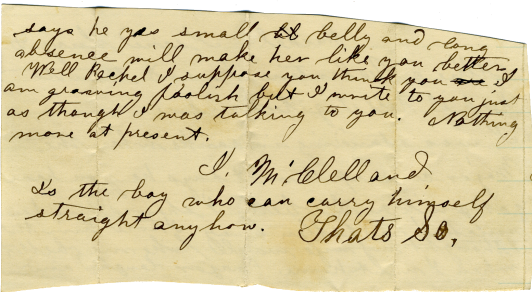 says he yas small belly and long
absence will make her like you better
Well Rachel I suppose you think you I
am growing foolish but I write to you just
as though I was talking to you. Nothing
more at present.
I. McClelland
Is the boy who can carry himself
straight anyhow. Thats So.